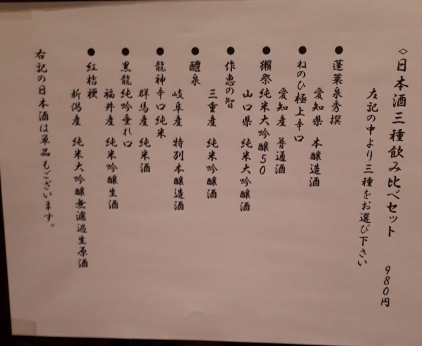 ◇日本酒三種飲み比べセット 980円
左記の中より三種をお選び下さい
●蓬莱泉秀撰
愛知県 本醸造酒
●ねのひ極上辛口
愛知産 普通酒
●獺祭純米大吟醸50
山口県 純米大吟醸酒
●作恵の智
三重産 純米吟醸酒
●醴泉
岐阜産 特別本醸造酒
●龍神辛口純米
群馬産 純米酒
●黒龍純吟垂れ口
福井産 純米吟醸生酒
●紅桔梗
新潟産 純米大吟醸無濾過生原酒
右記の日本酒は単品もございます。